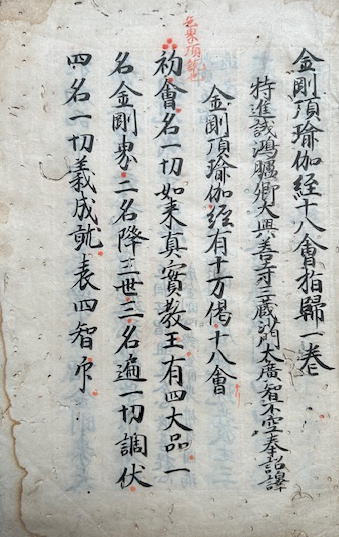 金剛頂瑜伽經十八會指歸一卷
特進試鴻臚卿大興善寺三藏沙門大廣智不空奉詔譯
金剛頂瑜伽經有十万偈十八會
初會名一切如来真實教王有四大品一
名金剛界二名降三世三名遍一切調伏
四名一切義成就表四智印